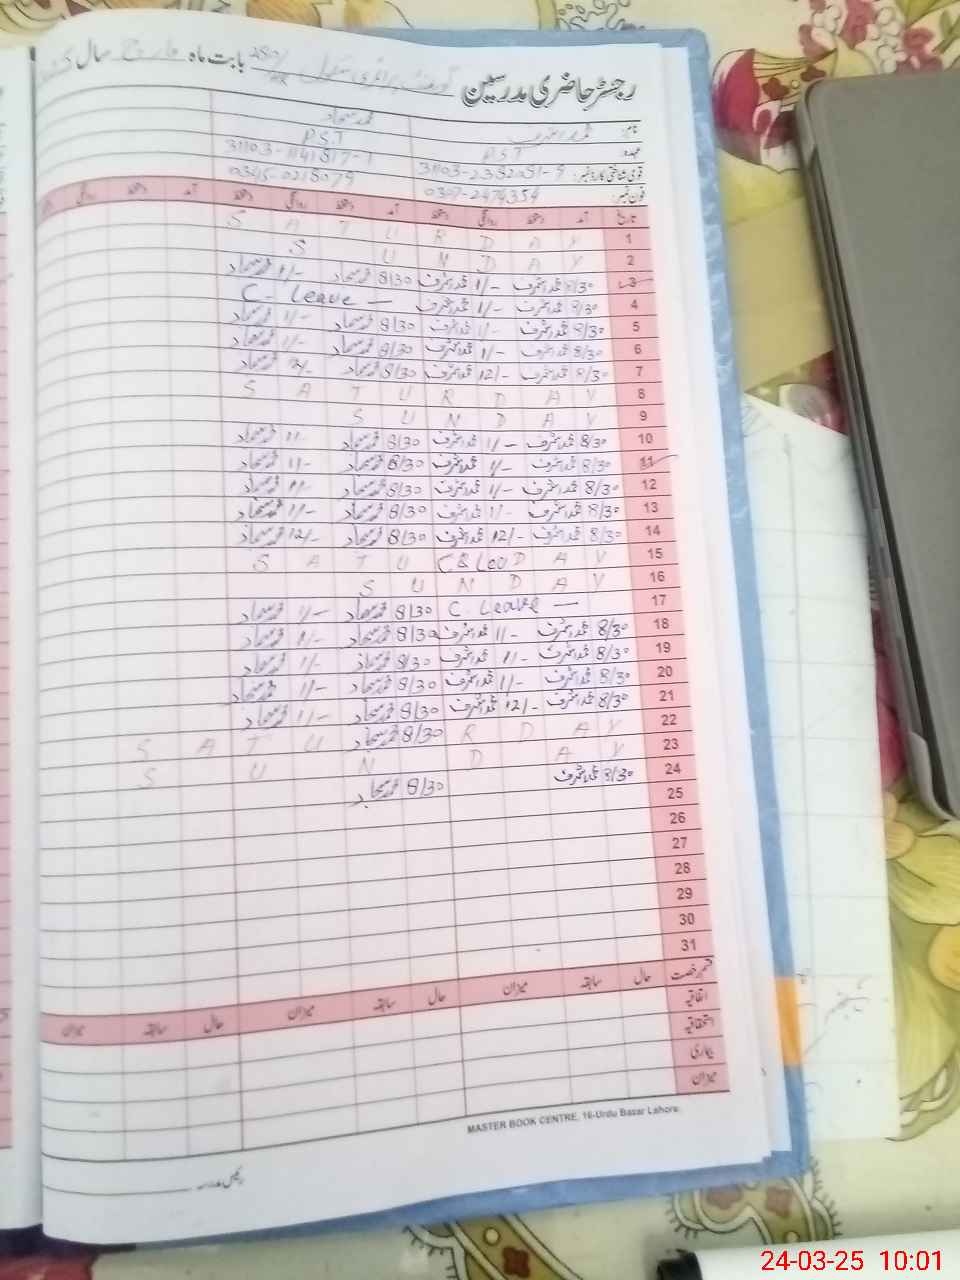 رجسٹر حاضری مدرسین گورنمنٹ پرائمری سکول 280/HR بابت ماہ مارچ سال
نام: محمد اشرف محمد سجاد
عہدہ: P.S.T P.S.T
قومی شناختی کارڈ نمبر: 31103-2382051-9 31103-1141817-7
فون نمبر: 0307-2474354 0345-0218079
تاریخ آمد دستخط روانگی دستخط آمد دستخط روانگی دستخط آمد دستخط روانگی
1 S A T U R D A Y
2 S U N D A Y
3 8/30 محمد اشرف 1/- محمد اشرف 8/30 محمد سجاد 1/- محمد سجاد
4 8/30 محمد اشرف 1/- محمد اشرف C. Leave —
5 8/30 محمد اشرف 1/- محمد اشرف 8/30 محمد سجاد 1/- محمد سجاد
6 8/30 محمد اشرف 1/- محمد اشرف 8/30 محمد سجاد 1/- محمد سجاد
7 8/30 محمد اشرف 12/- محمد اشرف 8/30 محمد سجاد محمد سجاد
8 S A T U R D A Y
9 S U N D A Y
10 8/30 محمد اشرف 1/- محمد اشرف 8/30 محمد سجاد 1/- محمد سجاد
11 8/30 محمد اشرف 1/- محمد اشرف 8/30 محمد سجاد 1/- محمد سجاد
12 8/30 محمد اشرف 1/- محمد اشرف 8/30 محمد سجاد 1/- محمد سجاد
13 8/30 محمد اشرف 1/- محمد اشرف 8/30 محمد سجاد 1/- محمد سجاد
14 8/30 محمد اشرف 12/- محمد اشرف 8/30 محمد سجاد 12/- محمد سجاد
15 S A T U D A Y
16 S U N D A Y
17 C. Leave — 8/30 محمد سجاد 1/- محمد سجاد
18 8/30 محمد اشرف 1/- محمد اشرف 8/30 محمد سجاد 1/- محمد سجاد
19 8/30 محمد اشرف 1/- محمد اشرف 8/30 محمد سجاد 1/- محمد سجاد
20 8/30 محمد اشرف 1/- محمد اشرف 8/30 محمد سجاد 1/- محمد سجاد
21 8/30 محمد اشرف 12/- محمد اشرف 8/30 محمد سجاد 1/- محمد سجاد
22 S A T U 8/30 محمد سجاد R D A Y
23 S U N D A Y
24 8/30 محمد اشرف 8/30 محمد سجاد
25
26
27
28
29
30
31
قسم رخصت حال سابقہ میزان حال سابقہ میزان حال سابقہ میزان
اتفاقیہ
استحقاقیہ
بیماری
میزان
MASTER BOOK CENTRE, 16-Urdu Bazar Lahore.
رئیس مدرسہ
24-03-25 10:01